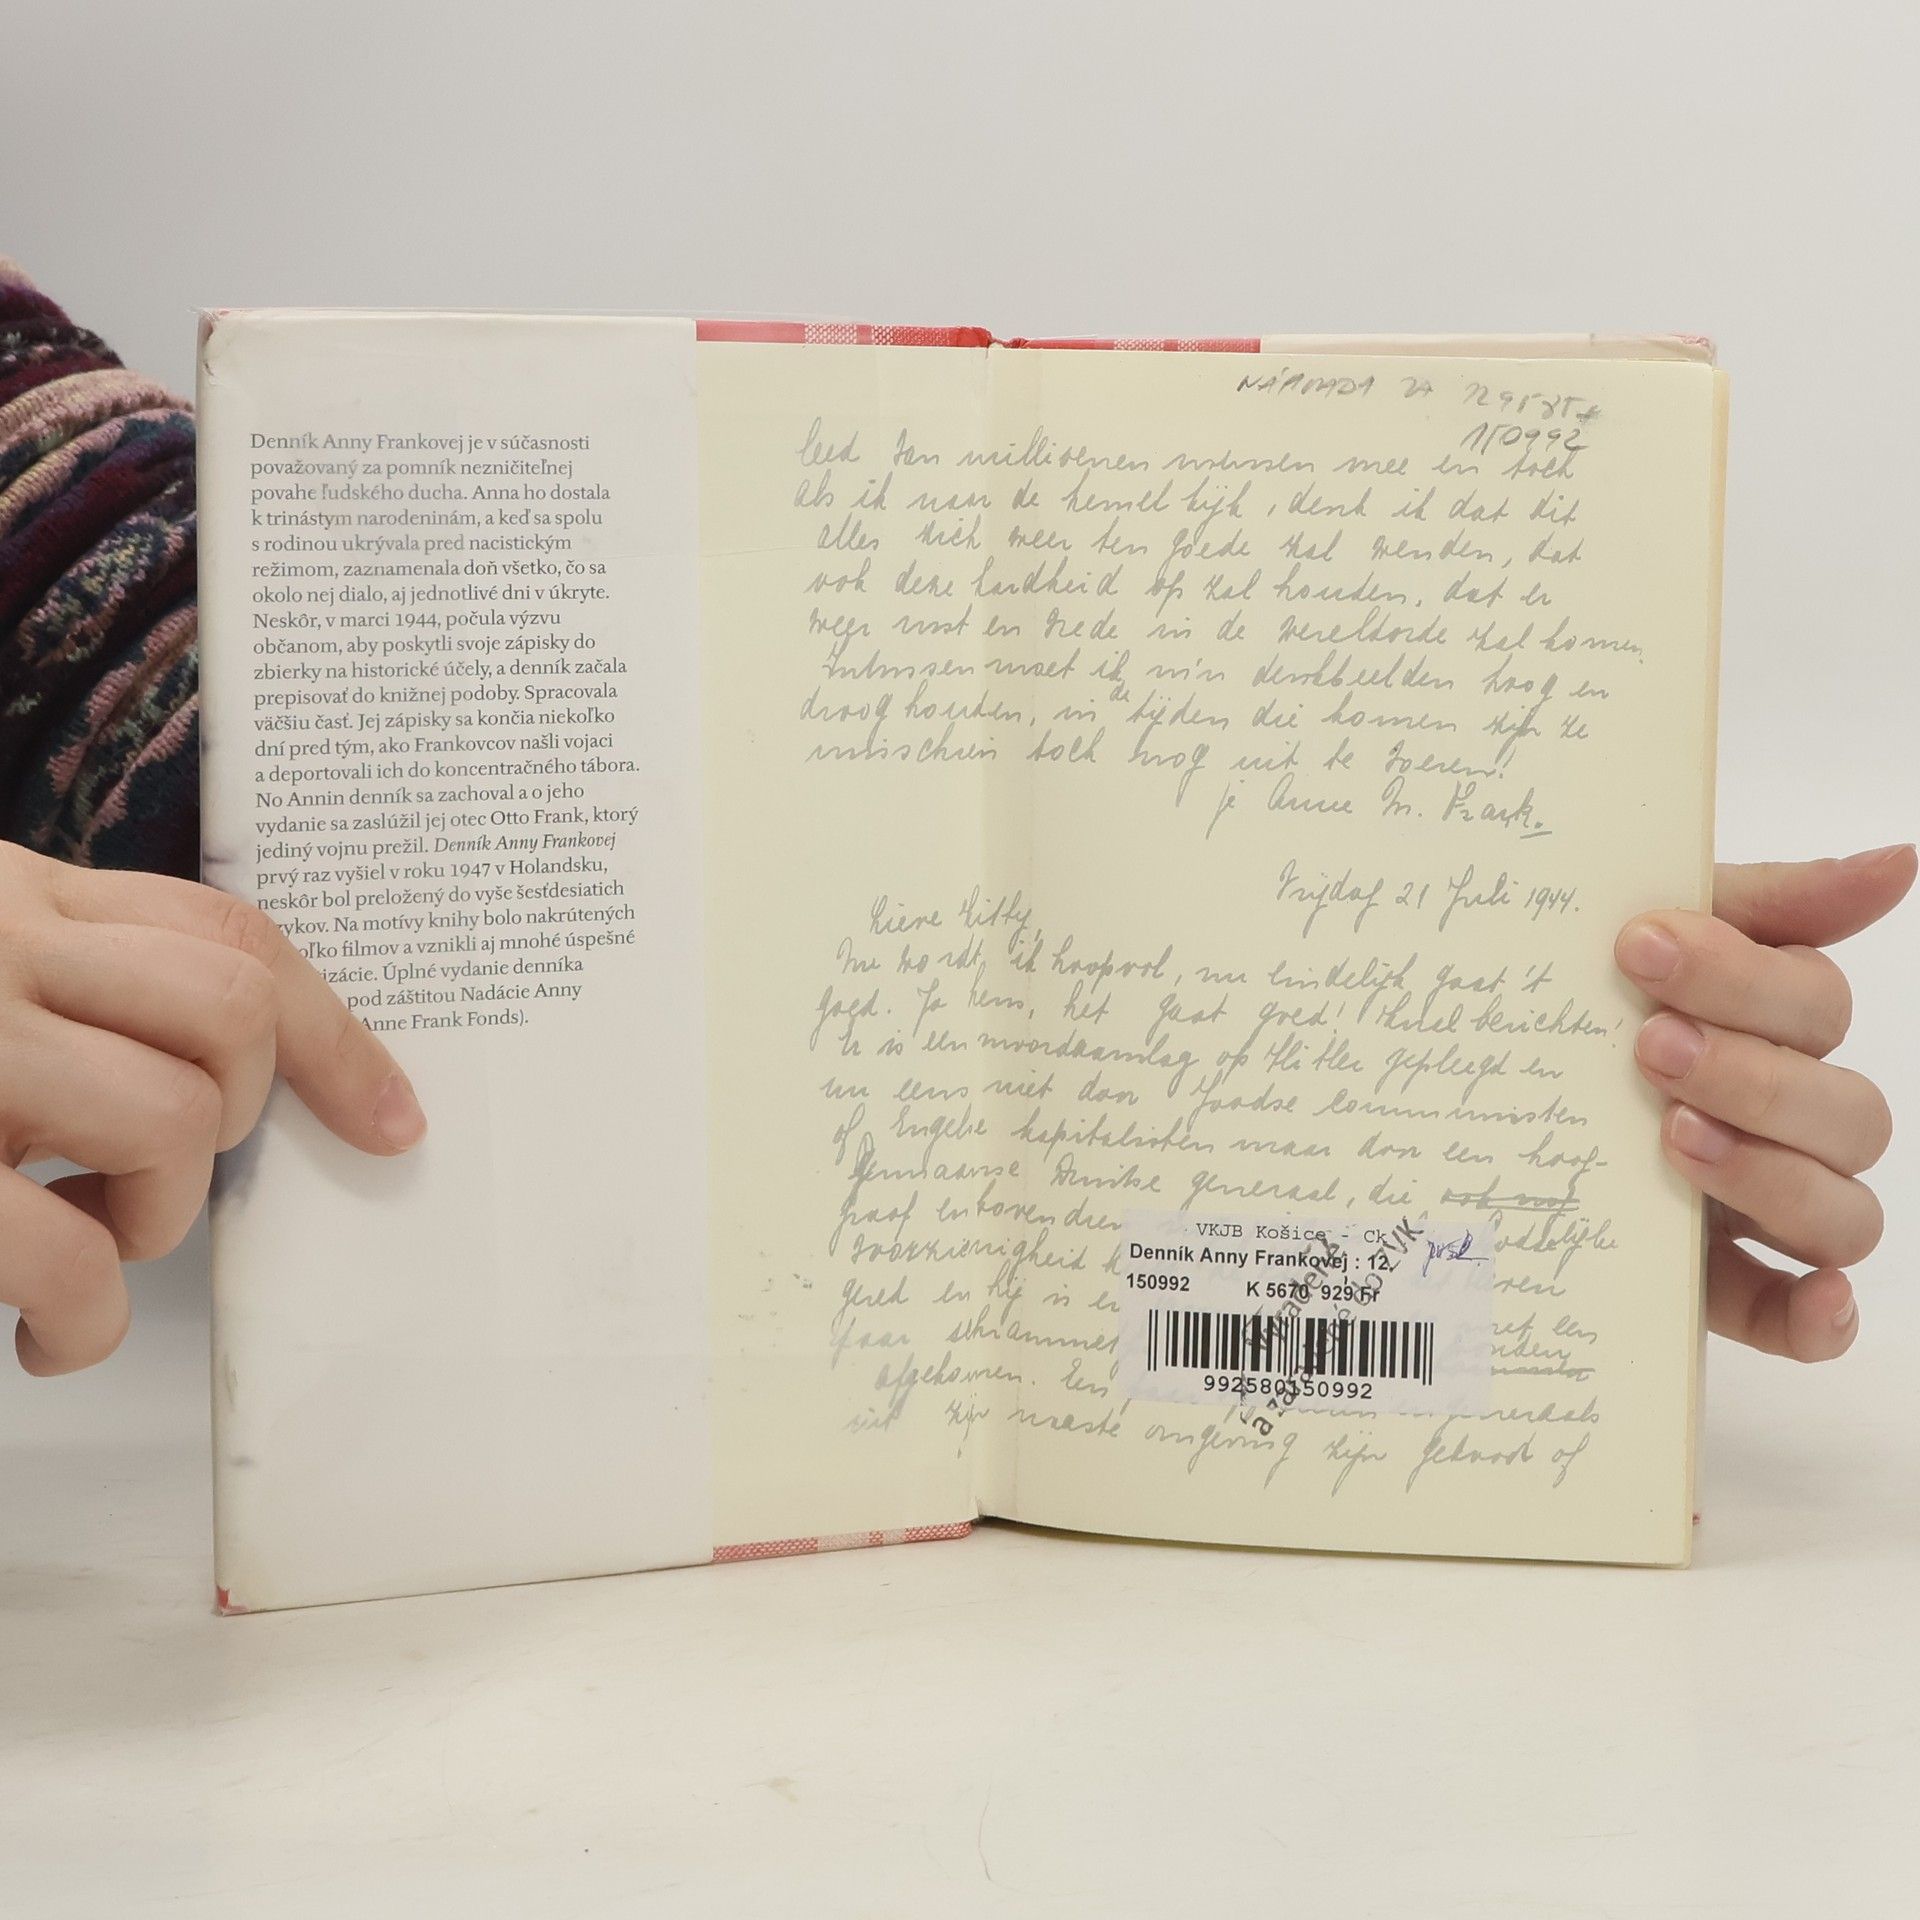 Denník Anny Frankovej je v súčasnosti
považovaný za pomník nezničiteľnej
povahe ľudského ducha. Anna ho dostala
k trinástym narodeninám, a keď sa spolu
s rodinou ukrývala pred nacistickým
režimom, zaznamenala doň všetko, čo sa
okolo nej dialo, aj jednotlivé dni v úkryte.
Neskôr, v marci 1944, počula výzvu
občanom, aby poskytli svoje zápisky do
zbierky na historické účely, a denník začala
prepisovať do knižnej podoby. Spracovala
väčšiu časť. Jej zápisky sa končia niekoľko
dní pred tým, ako Frankovcov našli vojaci
a deportovali ich do koncentračného tábora.
No Annin denník sa zachoval a o jeho
vydanie sa zaslúžil jej otec Otto Frank, ktorý
jediný vojnu prežil. Denník Anny Frankovej
prvý raz vyšiel v roku 1947 v Holandsku,
neskôr bol preložený do vyše šesťdesiatich
zykov. Na motívy knihy bolo nakrútených
oľko filmov a vznikli aj mnohé úspešné
izácie. Úplné vydanie denníka
pod záštitou Nadácie Anny
Anne Frank Fonds).
NÁHRADA ZA
150992
leed van millioenen mensen mee en toch
als ik naar de hemel kijk, denk ik dat dit
alles zich weer ten goede zal wenden, dat
ook deze hardheid op zal houden, dat er
weer rust en vrede in de wereldorde zal komen.
Intussen moet ik m'n denkbeelden hoog en
droog houden, in de tijden die komen zijn ze
misschien toch nog uit te voeren!
je Anne M. Frank.
Vrijdag 21 Juli 1944.
Lieve Kitty,
Nu word ik hoopvol, nu eindelijk gaat 't
goed. Ja heus, het gaat goed! Knal berichten!
Er is een moordaanslag op Hitler gepleegd en
nu eens niet door Joodse communisten
of Engelse kapitalisten maar door een hoog-
germaanse Duitse generaal, die ook nog
graaf en bovendien
voorzienigheid
gered en hij is
paar schrammen een
afgekomen. Een
uit zijn naaste omgeving zijn gedood of
VKJB Košice - Ck
Denník Anny Frankovej : 12.
150992 K 5670 929 Fr
992580150992